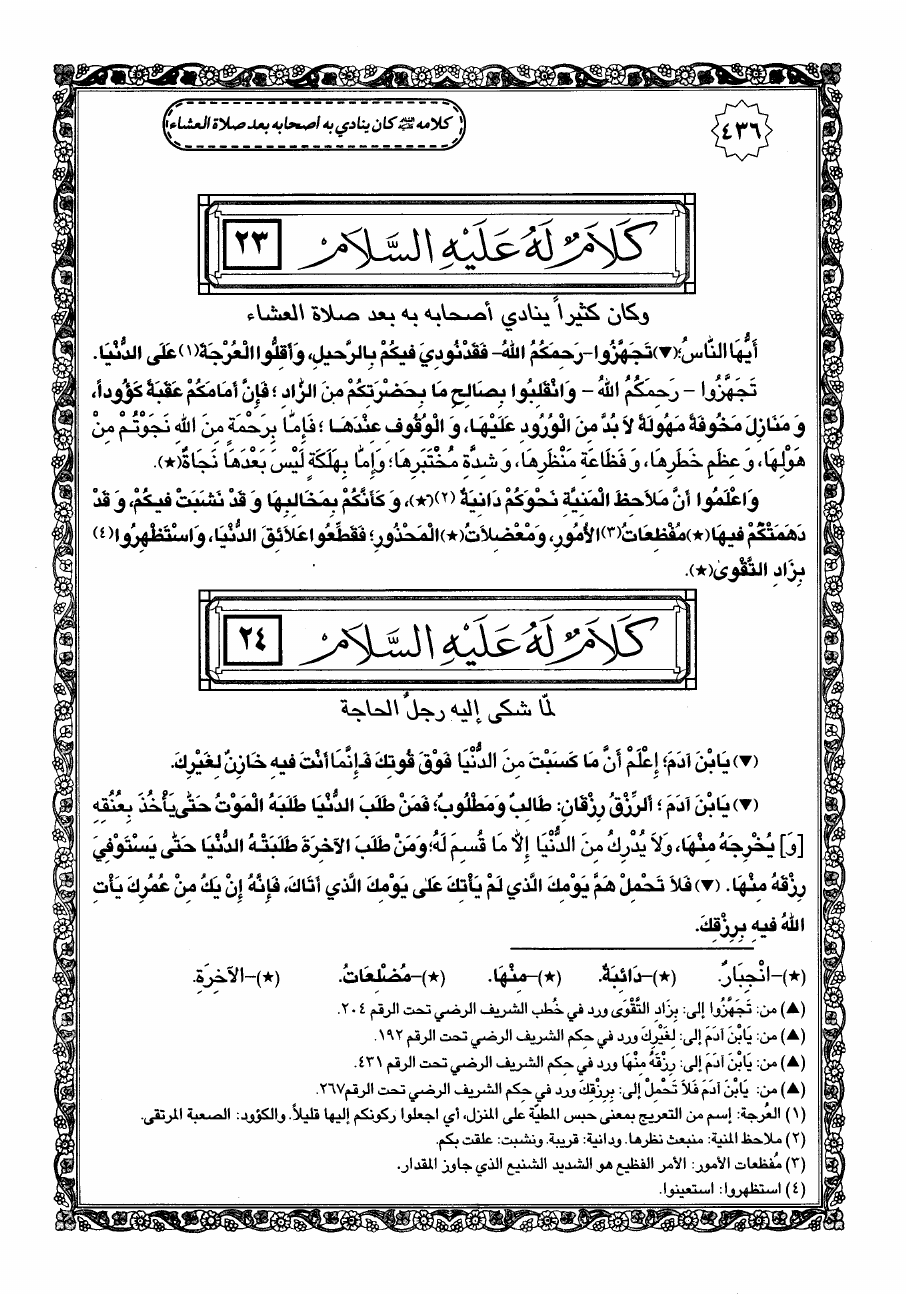 ٤٣٦
كلامه ﷺ كان ينادي به أصحابه بعد صلاة العشاء
كَلَامٌ لَهُ عَلَيْهِ السَّلَامُ ٢٣
وكان كثيراً ينادي أصحابه به بعد صلاة العشاء
أَيُّهَا النَّاسُ؛(▼)تَجَهَّزُوا-رَحِمَكُمُ اللهُ- فَقَدْنُودِيَ فيكُمْ بِالرَّحيلِ، وَأَقِلُّوا الْعُرْجَةَ(١)عَلَى الدُّنْيَا.
تَجَهَّزُوا - رَحِمَكُمُ اللهُ - وَانْقَلِبُوا بِصَالِحِ مَا بِحَضْرَتِكُمْ مِنَ الزَّادِ ؛ فَإِنَّ أَمَامَكُمْ عَقَبَةً كَؤُوداً،
وَ مَنَازِلَ مَخُوفَةً مَهُولَةً لاَ بُدَّ مِنَ الْوُرُودِ عَلَيْهَا، وَ الْوُقُوفِ عِنْدَهَا ؛ فَإِمَّا بِرَحْمَةٍ مِنَ اللهِ نَجَوْتُمْ مِنْ
هَوْلِهَا، وَ عِظَمِ خَطَرِهَا، وَ فَظَاعَةِ مَنْظَرِهَا، وَ شِدَّةِ مُخْتَبَرِهَا؛ وَإِمَّا بِهَلَكَةٍ لَيْسَ بَعْدَهَا نَجَاةٌ(★).
وَاعْلَمُوا أَنَّ مَلاَحِظَ الْمَنِيَّةِ نَحْوَكُمْ دَانِيَةٌ (٢)(★)، وَ كَأَنَّكُمْ بِمَخَالِبِهَا وَ قَدْ نَشَبَتْ فيكُمْ، وَ قَدْ
دَهَمَتْكُمْ فيهَا(★)مُفْظِعَاتُ(٣)الأُمُورِ، وَمَعْضِلاَتُ(★)الْمَحْذُورِ؛ فَقَطِّعُوا عَلاَئِقَ الدُّنْيَا، وَاسْتَظْهِرُوا(٤)
بِزَادِ التَّقْوىٰ(★).
كَلَامٌ لَهُ عَلَيْهِ السَّلَامُ ٢٤
لمّا شكى إليه رجلٌ الحاجة
(▼) يَابْنَ آدَمَ؛ إِعْلَمْ أَنَّ مَا كَسَبْتَ مِنَ الدُّنْيَا فَوْقَ قُوتِكَ فَإِنَّمَا أَنْتَ فيهِ خَازِنٌ لِغَيْرِكَ.
(▼) يَابْنَ آدَمَ ؛ اَلرِّزْقُ رِزْقَانِ: طَالِبٌ وَمَطْلُوبٌ؛ فَمَنْ طَلَبَ الدُّنْيَا طَلَبَهُ الْمَوْتُ حَتّٰى يَأْخُذَ بِعُنُقِهِ
[وَ] يُخْرِجَهُ مِنْهَا، وَلاَ يُدْرِكُ مِنَ الدُّنْيَا إِلاَّ مَا قُسِمَ لَهُ؛ وَمَنْ طَلَبَ الآخِرَةَ طَلَبَتْهُ الدُّنْيَا حَتّٰى يَسْتَوْفِيَ
رِزْقَهُ مِنْهَا. (▼) فَلاَ تَحْمِلْ هَمَّ يَوْمِكَ الَّذي لَمْ يَأْتِكَ عَلىٰ يَوْمِكَ الَّذي أَتَاكَ، فَإِنَّهُ إِنْ يَكُ مِنْ عُمُرِكَ يَأْتِ
اللهُ فيهِ بِرِزْقِكَ.
(★)-انْجِبَارٌ. (★)-دَائِبَةٌ. (★)-مِنْهَا. (★)-مُضْلِعَاتُ. (★)-الآخِرَةِ.
(▲) من: تَجَهَّزُوا إلى: بِزَادِ التَّقْوَى ورد في خُطب الشريف الرضي تحت الرقم ٢٠٤.
(▲) من: يَابْنَ آدَمَ إلى: لِغَيْرِكَ ورد في حِكم الشريف الرضي تحت الرقم ١٩٢.
(▲) من: يَابْنَ آدَمَ إلى: رِزْقَهُ مِنْهَا ورد في حِكم الشريف الرضي تحت الرقم ٤٣١.
(▲) من: يَابْنَ آدَمَ فَلاَ تَحْمِلْ إلى: بِرِزْقِكَ ورد في حِكم الشريف الرضي تحت الرقم٢٦٧.
(١) العُرجة: إسم من التعريج بمعنى حبس المطيّة على المنزل، أي اجعلوا ركونكم إليها قليلاً. والكؤود: الصعبة المرتقى.
(٢) ملاحظ المنية: منبعث نظرها. ودانية: قريبة. ونشبت: علقت بكم.
(٣) مُفظعات الأمور: الأمر الفظيع هو الشديد الشنيع الذي جاوز المقدار.
(٤) استظهروا: استعينوا.